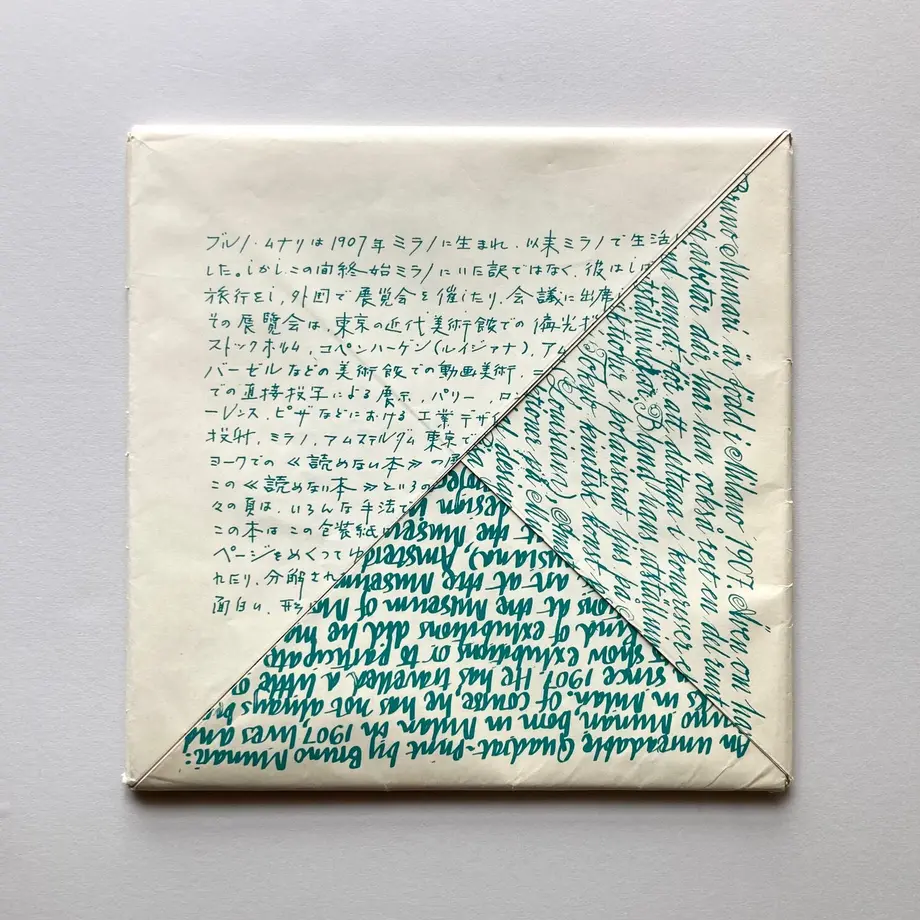 ブルノ・ムナリは1907年ミラノに生まれ、以来ミラノで生活
した。しかしこの間終始ミラノにいた訳ではなく、彼は
旅行をし、外国で展覧会を催したり、会議に出席
その展覧会は、東京の近代美術館での偏光投
ストックホルム、コペンハーゲン(ルイジアナ)、アム
バーゼルなどの美術館での動画美術、ニ
での直接投写による展示、パリー、ロン
ーレンス、ピザなどにおける工業デザイ
投射、ミラノ、アムステルダム東京で
ヨークでの≪読めない本≫の展
この≪読めない本≫というの
々の頁は、いろんな手法で
この本はこの包装紙
ページをめくってゆ
れたり、分解され
面白い、形
Bruno Munari är född i Milano, 1907. Även om ha
arbetar där, har han också rest en del runt
annat för att deltaga i konferenser
utställningar. Bland hans utställnin
i polariserat ljus på
kinetisk konst
An unreadable Quadrat-Print by Bruno Munari:
uno Munari born in Milan in 1907 lives and
ks in Milan. Of course he has not always be
n since 1907. He has travelled a little o
show exhibitions or to participate
kind of exhibitions did he me
ons at the Museum of Mo
art at the Museum
isiana), Amsterd
t the Museu
design in